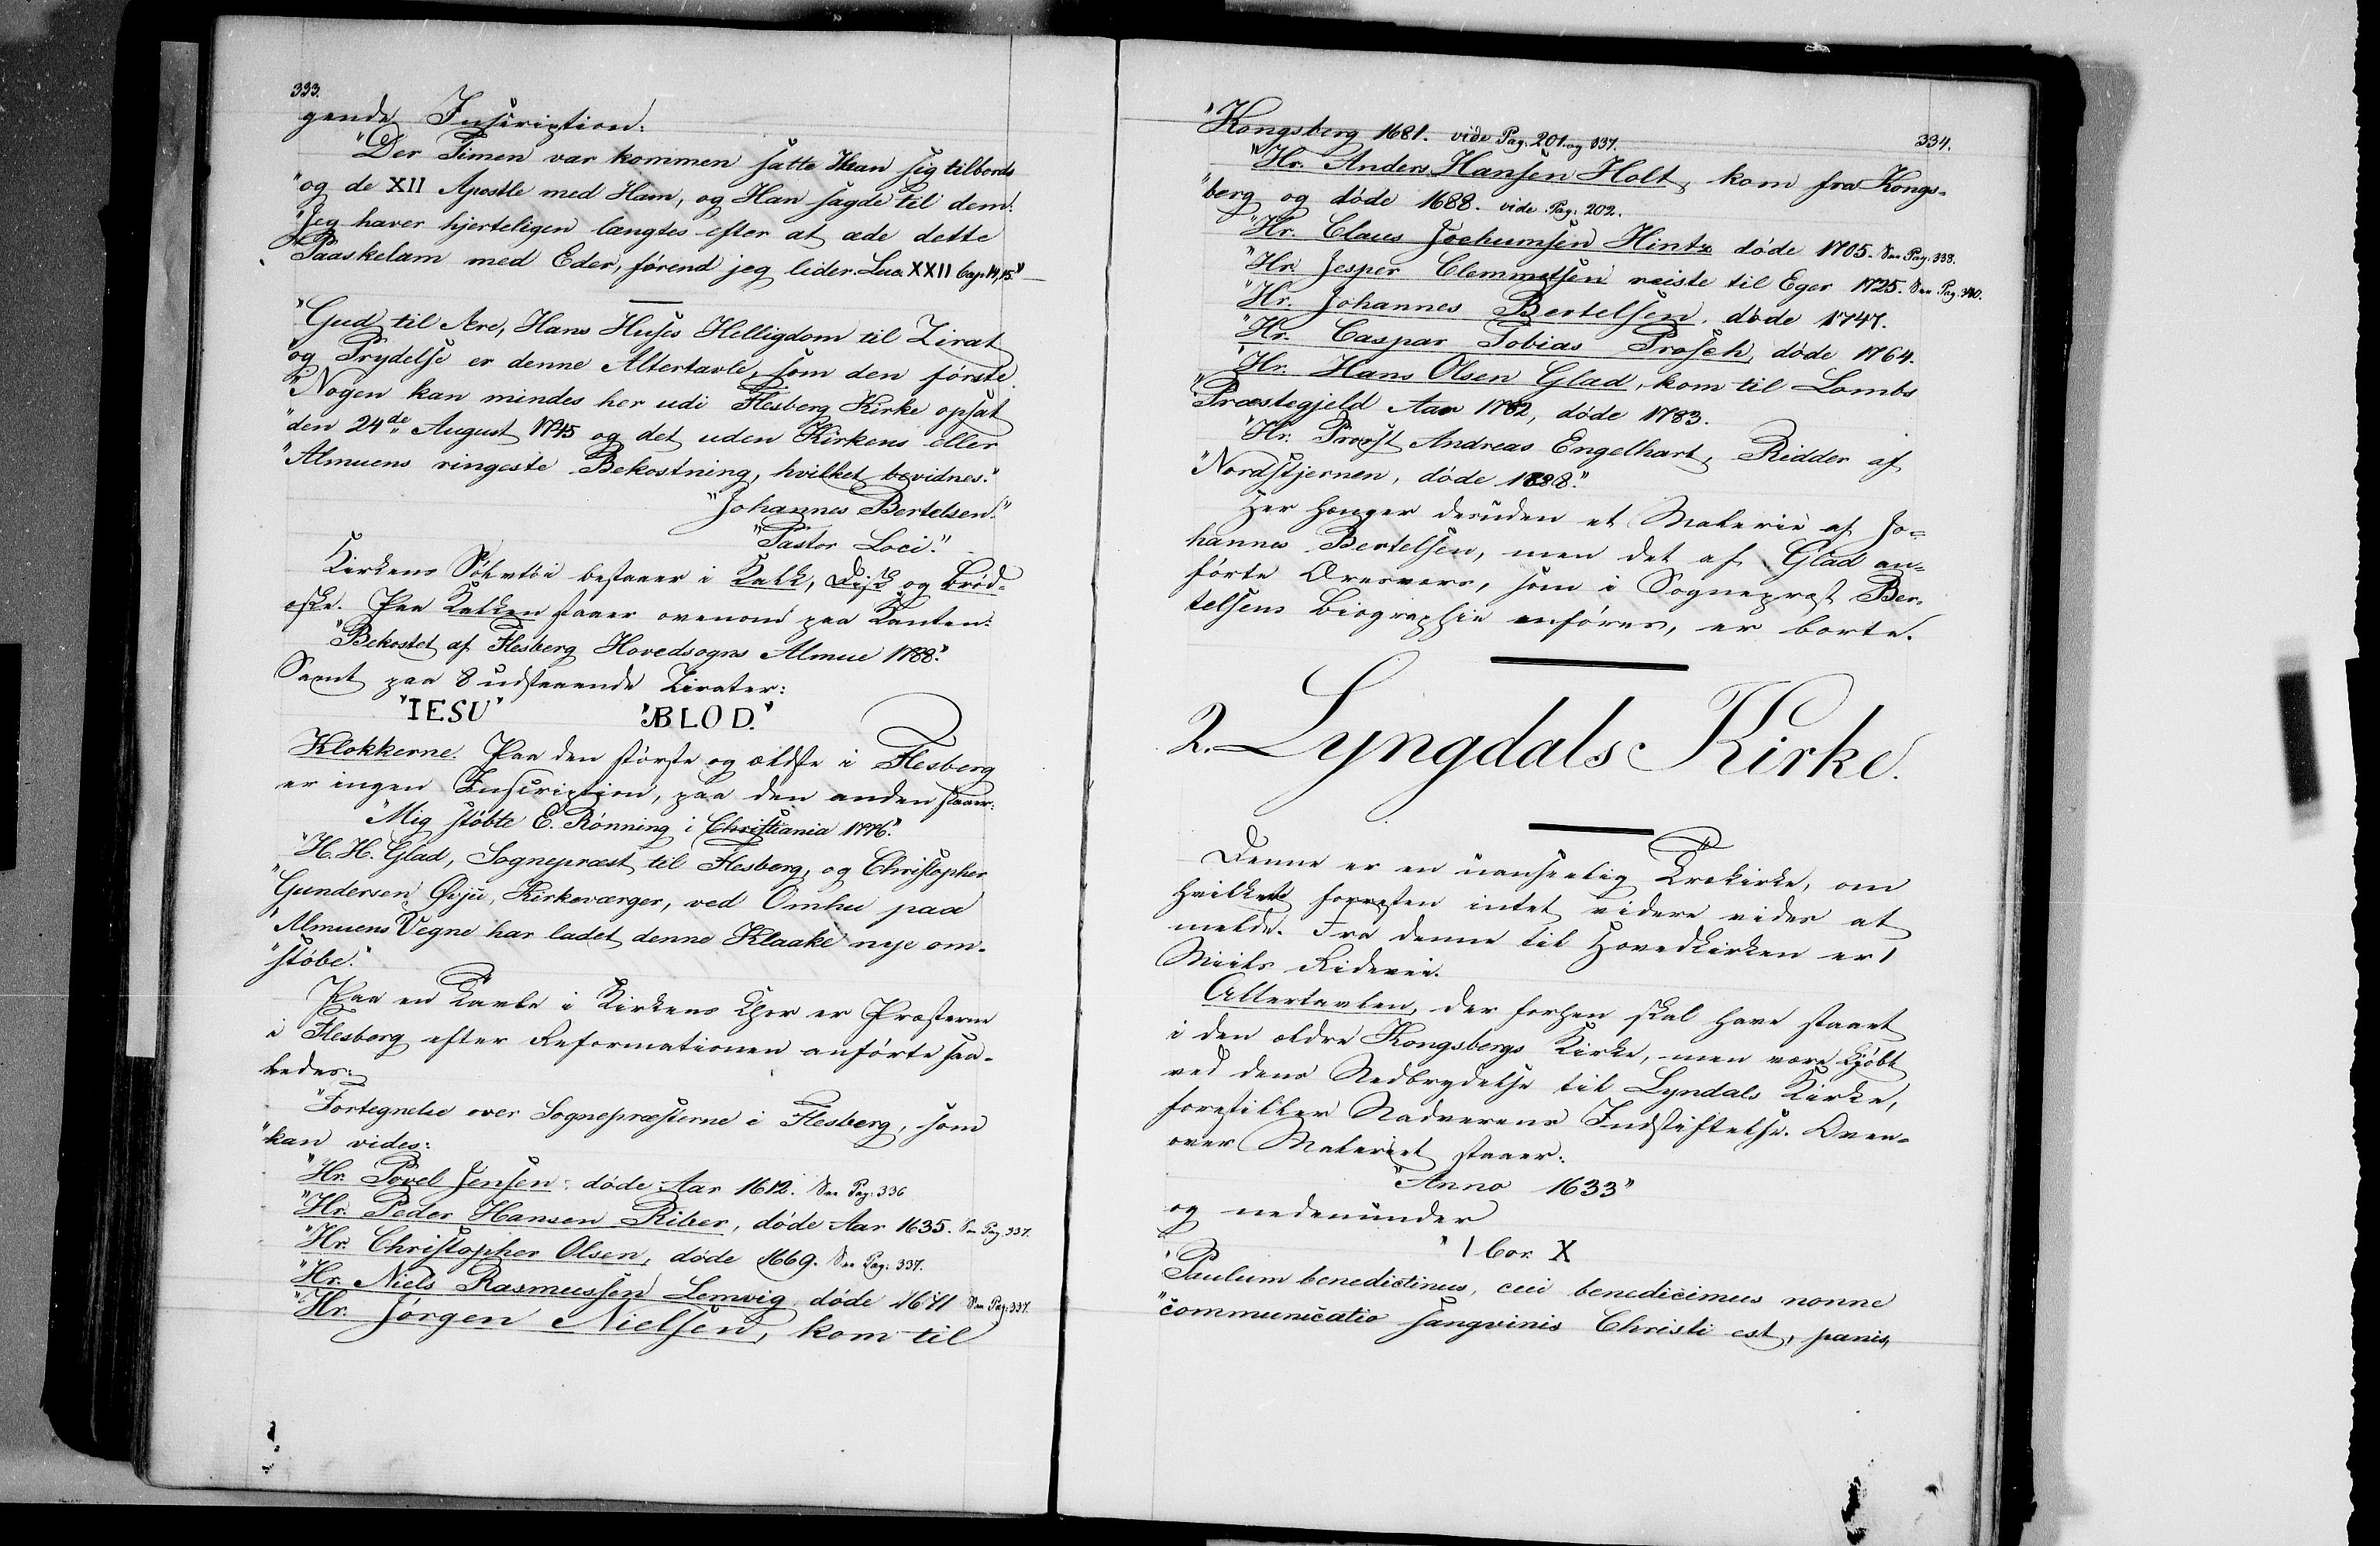 333.
gende Inscription:
"Der Timen var kommen satte Han sig tilbords
"og de XII Apostle med Ham, og Han sagde til dem:
"Jeg haver hjerteligen længtes efter at æde dette
"Paaskelam med Eder, førend jeg lider. Luc. XXII Cap. 14, 15."
"Gud til Ære, Hans Huses Helligdom til Zirat
"og Prydelse er denne Altertavle, som den første
"Nogen kan mindes her udi Flesberg Kirke opsat
"den 24de August 1745 og det uden Kirkens eller
"Almuens ringeste Bekostning, hvilket bevidnes."
"Johannes Bertelsen."
"Pastor Loci."
Kirkens Sølvtøi bestaaer i Kalk, Disk og Brød-
æske. Paa Kalken staaer ovenom paa Kanten:
"Bekostet af Flesberg Hovedsogns Almue 1788."
Samt paa 8 udstaaende Zirater:
"IESU" "BLOD."
Klokkerne. Paa den største og ældste i Flesberg
er ingen Inscription, paa den anden staaer:
"Mig støbte E. Rønning i Christiania 1776."
"H. H. Glad, Sognepræst til Flesberg, og Christopher
"Gundersen Øvju, Kirkeværger, ved Omhu paa
"Almuens Vegne har ladet denne Klaake nye om-
"støbe."
Paa en Tavle i Kirkens Chor er Præsterne
i Flesberg efter Reformationen anførte saa-
ledes:
"Fortegnelse over Sognepræsterne i Flesberg, som
"kan vides:
"Hr. Povel Jensen, døde Aar 1612. See Pag: 336
"Hr. Peder Hansen Riber, døde Aar 1635. See Pag. 337.
"Hr. Christopher Olsen, døde 1669. See Pag: 337.
"Hr. Niels Rasmussen Lemvig døde 1671 See Pag: 337.
"Hr. Jørgen Nielsen, kom til
334.
"Kongsberg 1681. vide Pag. 201 og 337.
"Hr. Anders Hansen Holt, kom fra Kongs-
"berg og døde 1688. vide Pag: 202.
"Hr. Claus Jochumsen Hintz døde 1705. See Pag. 338.
"Hr. Jesper Clemmetsen reiste til Eger 1725. See Pag. 340.
"Hr. Johannes Bertelsen, døde 1747.
"Hr. Caspar Tobias Prosch, døde 1764.
"Hr. Hans Olsen Glad, kom til Lombs
"Præstegjeld Aar 1782, døde 1783.
"Hr. Provst Andreas Engelhart, Ridder af
"Nordstjernen, døde 1828."
Her hænger desuden et Malerie af Jo-
hannes Bertelsen, men det af Glad an-
førte Æresvers, som i Sognepræst Ber-
telsens Biographie anføres, er borte.
2. Lyngdals Kirke.
Denne er en uanseelig Trækirke, om
hvilken forresten intet videre vides at
melde. Fra denne til Hovedkirken er 1
Miils Ridevei.
Altertavlen, der forhen skal have staaet
i den ældre Kongsbergs Kirke, men være kjøbt
ved dens Nedbrydelse til Lyndals Kirke,
forestiller Nadverens Indstiftelse. Oven-
over Maleriet staaer:
"Anno 1633"
og nedenunder
"1 Cor. X
"Paulum benedictinus, cui benedicimus nonne
"communicatio sangvinis Christi est, panis,